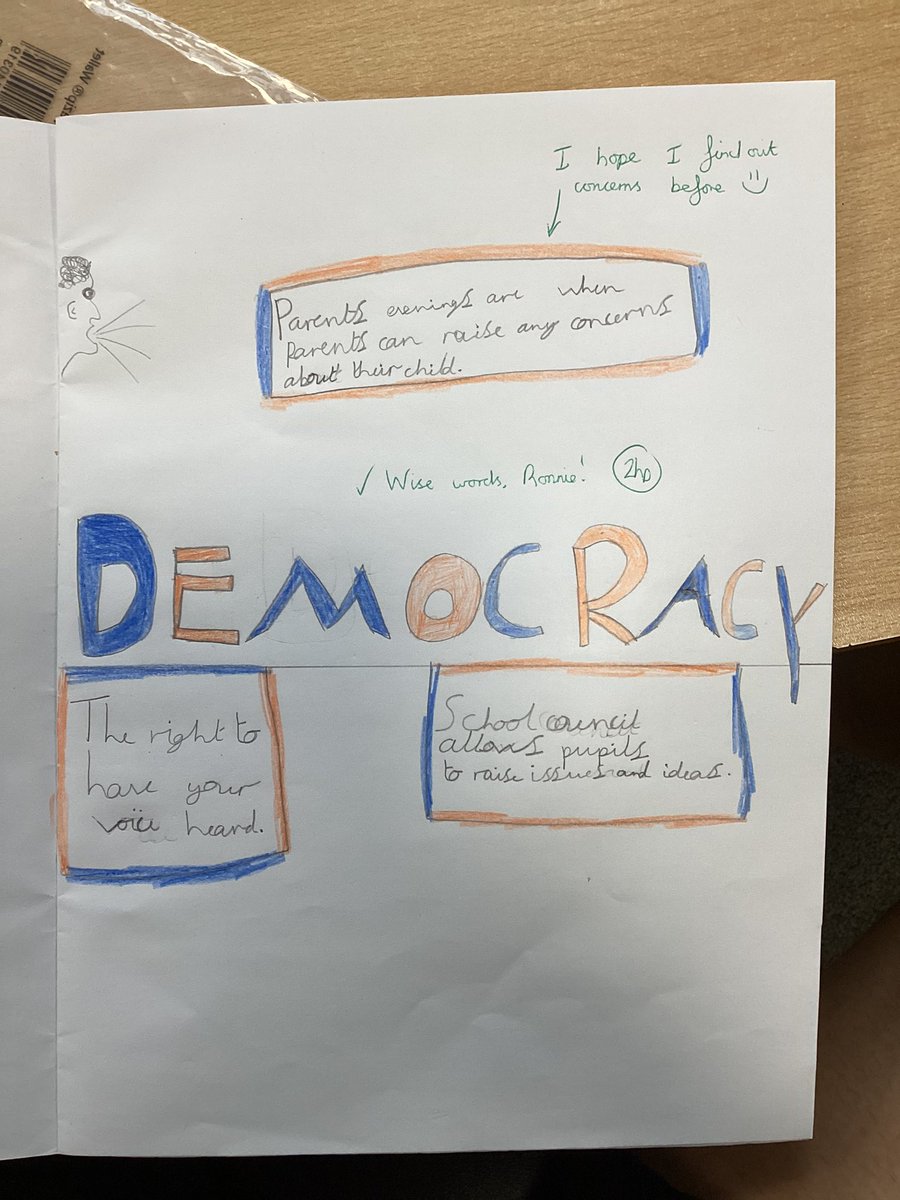 I hope I find out
concerns before
Parents evenings are when
parents can raise any concerns
about their child.
✓ Wise words, Ronnie! 2hp
DEMOCRACY
The right to
have your
voice heard.
School council
allows pupils
to raise issues and ideas.